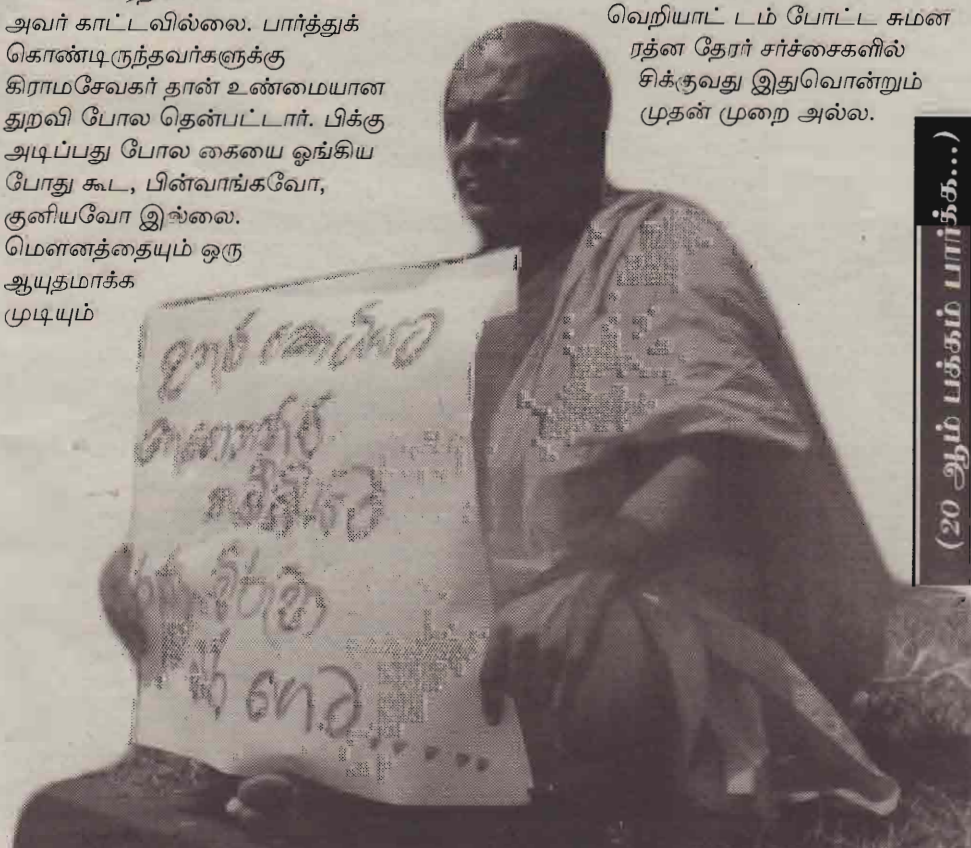 அவர் காட்டவில்லை. பார்த்துக்
கொண்டிருந்தவர்களுக்கு
கிராமசேவகர் தான் உண்மையான
துறவி போல தென்பட்டார். பிக்கு
அடிப்பது போல கையை ஓங்கிய
போது கூட, பின்வாங்கவோ,
குனியவோ இல்லை.
மௌனத்தையும் ஒரு
ஆயுதமாக்க
முடியும்
வெறியாட் டம் போட்ட சுமன
ரத்ன தேரர் சர்ச்சைகளில்
சிக்குவது இதுவொன்றும்
முதன் முறை அல்ல.
(20 ஆம் பக்கம் பார்க்க...)